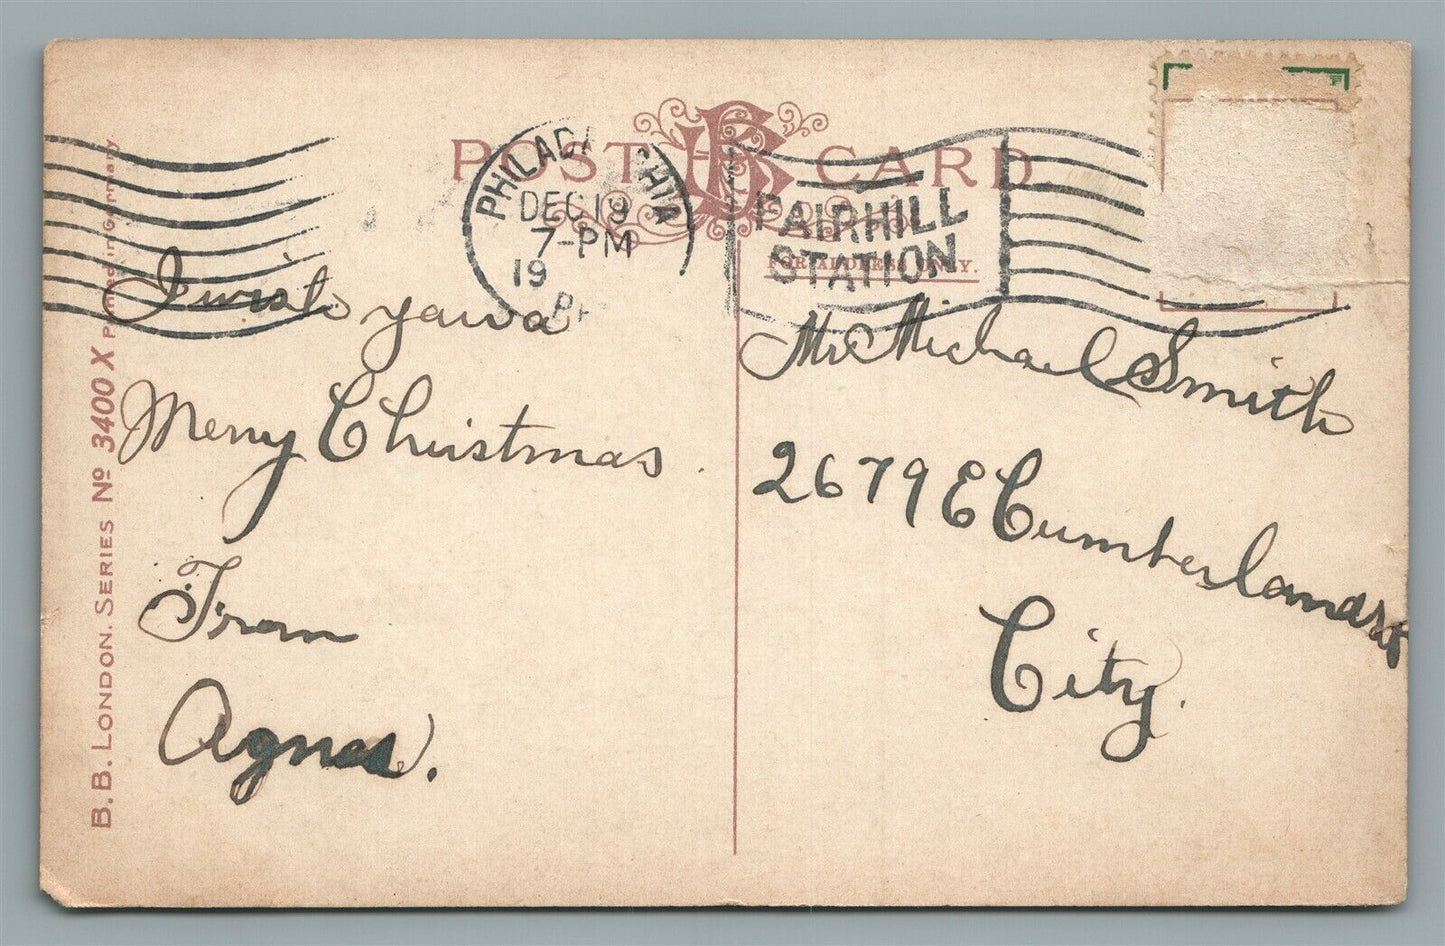 POST CARD
PHILADELPHIA
DEC 19
7-PM
19
PA
FAIRHILL
STATION
FOR ADDRESS ONLY.
I wish you a
Merry Christmas.
From
Agnes.
Mr Michael Smith
2679 E Cumberland st
City.
B. B. LONDON. SERIES No 3400 X Printed in Germany